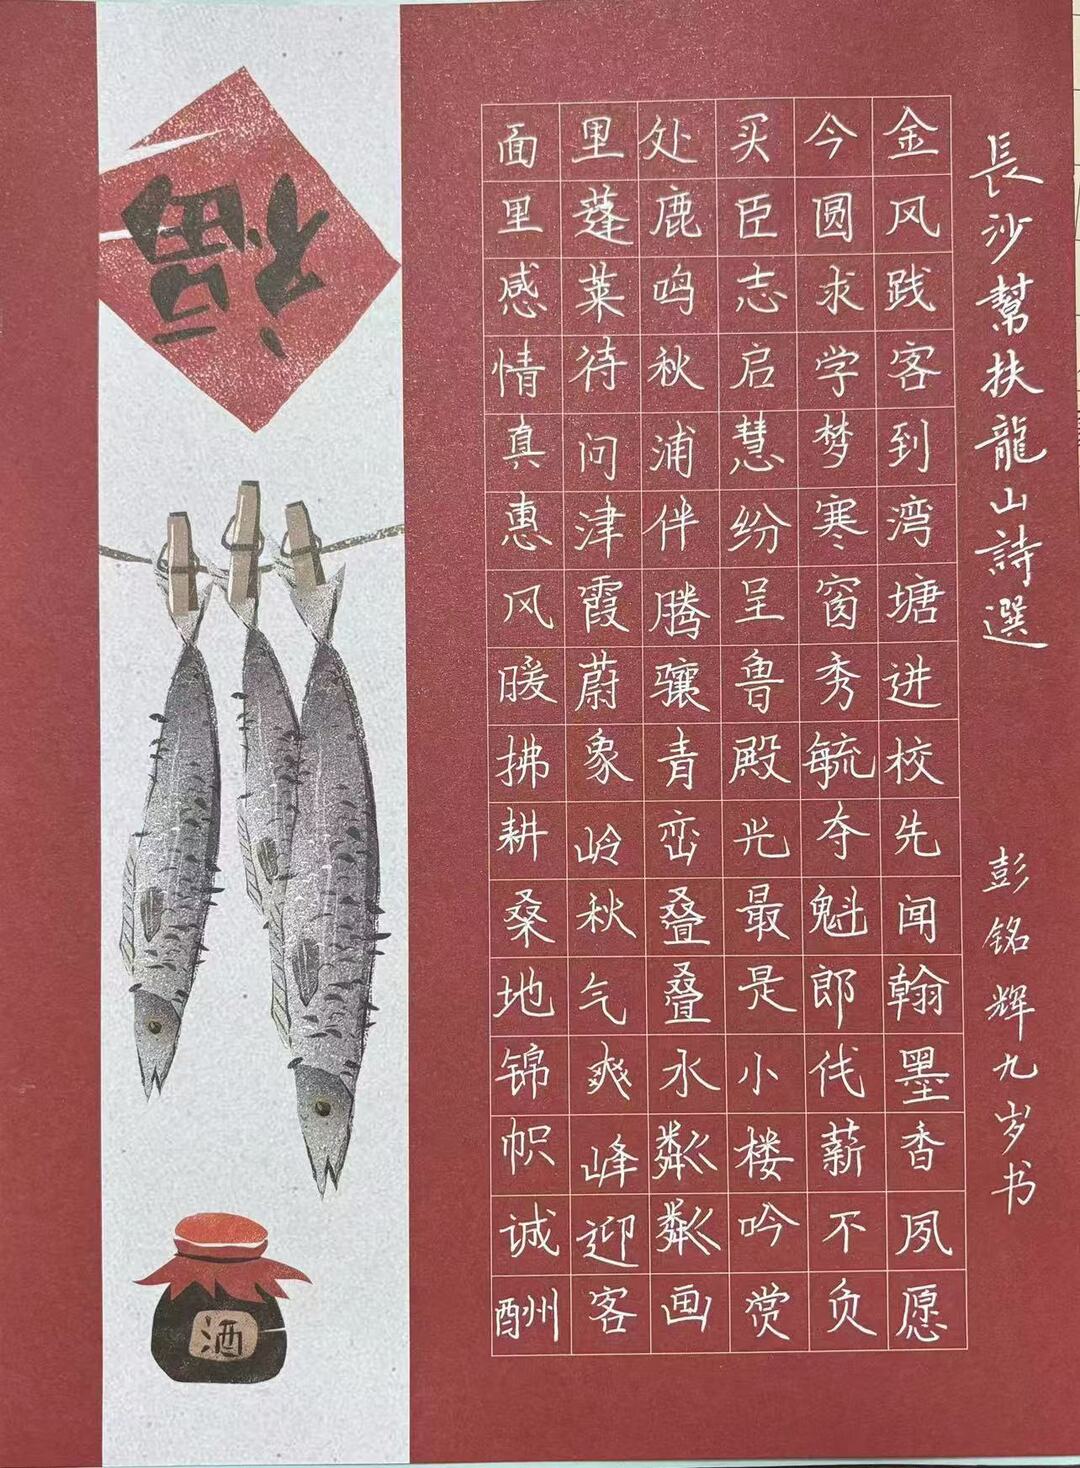 長沙幫扶龍山詩選
彭铭辉九岁书
金风践客到湾塘进校先闻翰墨香夙愿
今圆求学梦寒窗秀毓夺魁郎代薪不负
买臣志启慧纷呈鲁殿光最是小楼吟赏
处鹿鸣秋浦伴腾骧青峦叠叠水粼粼画
里蓬莱待问津霞蔚象岭秋气爽峰迎客
面里感情真惠风暖拂耕桑地锦帜诚酬
福
酒